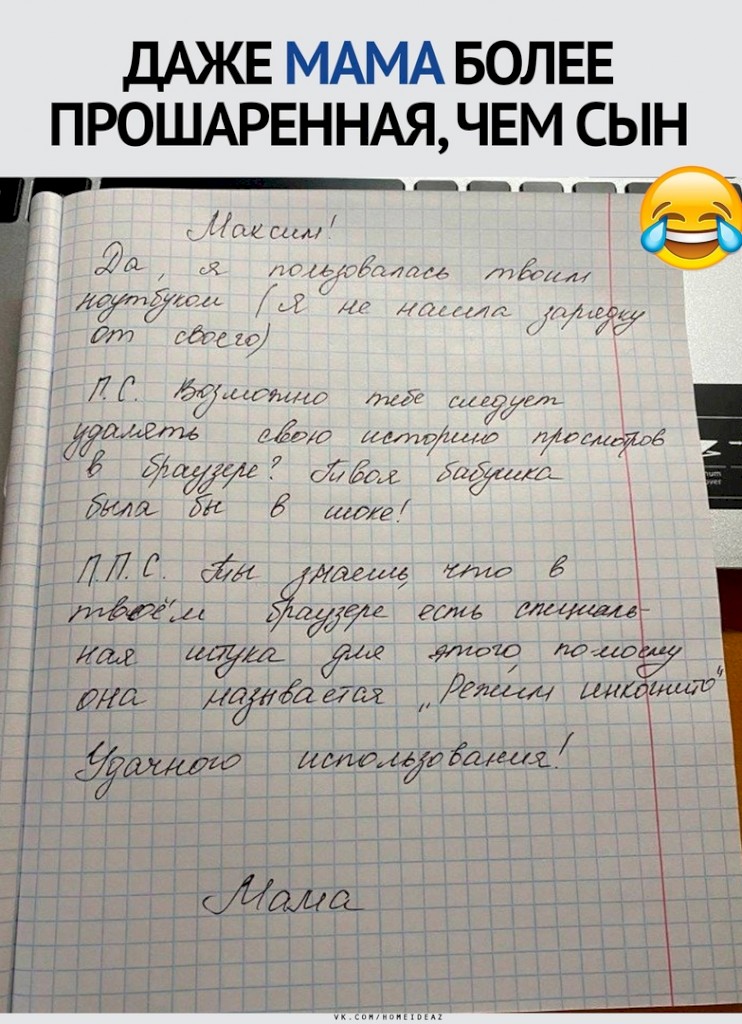 ДАЖЕ МАМА БОЛЕЕ
ПРОШАРЕННАЯ, ЧЕМ СЫН
Максим!
Да, я пользовалась твоим
ноутбуком (я не нашла зарядку
от своего)
П.С. Возможно тебе следует
удалять свою историю просмотров
в браузере? Твоя бабушка
была бы в шоке!
П.П.С. Ты знаешь, что в
твоём браузере есть специаль-
ная штука для этого, по-моему
она называется "Режим инкогнито"
Удачного использования!
Мама
VK.COM/HOMEIDEAZ